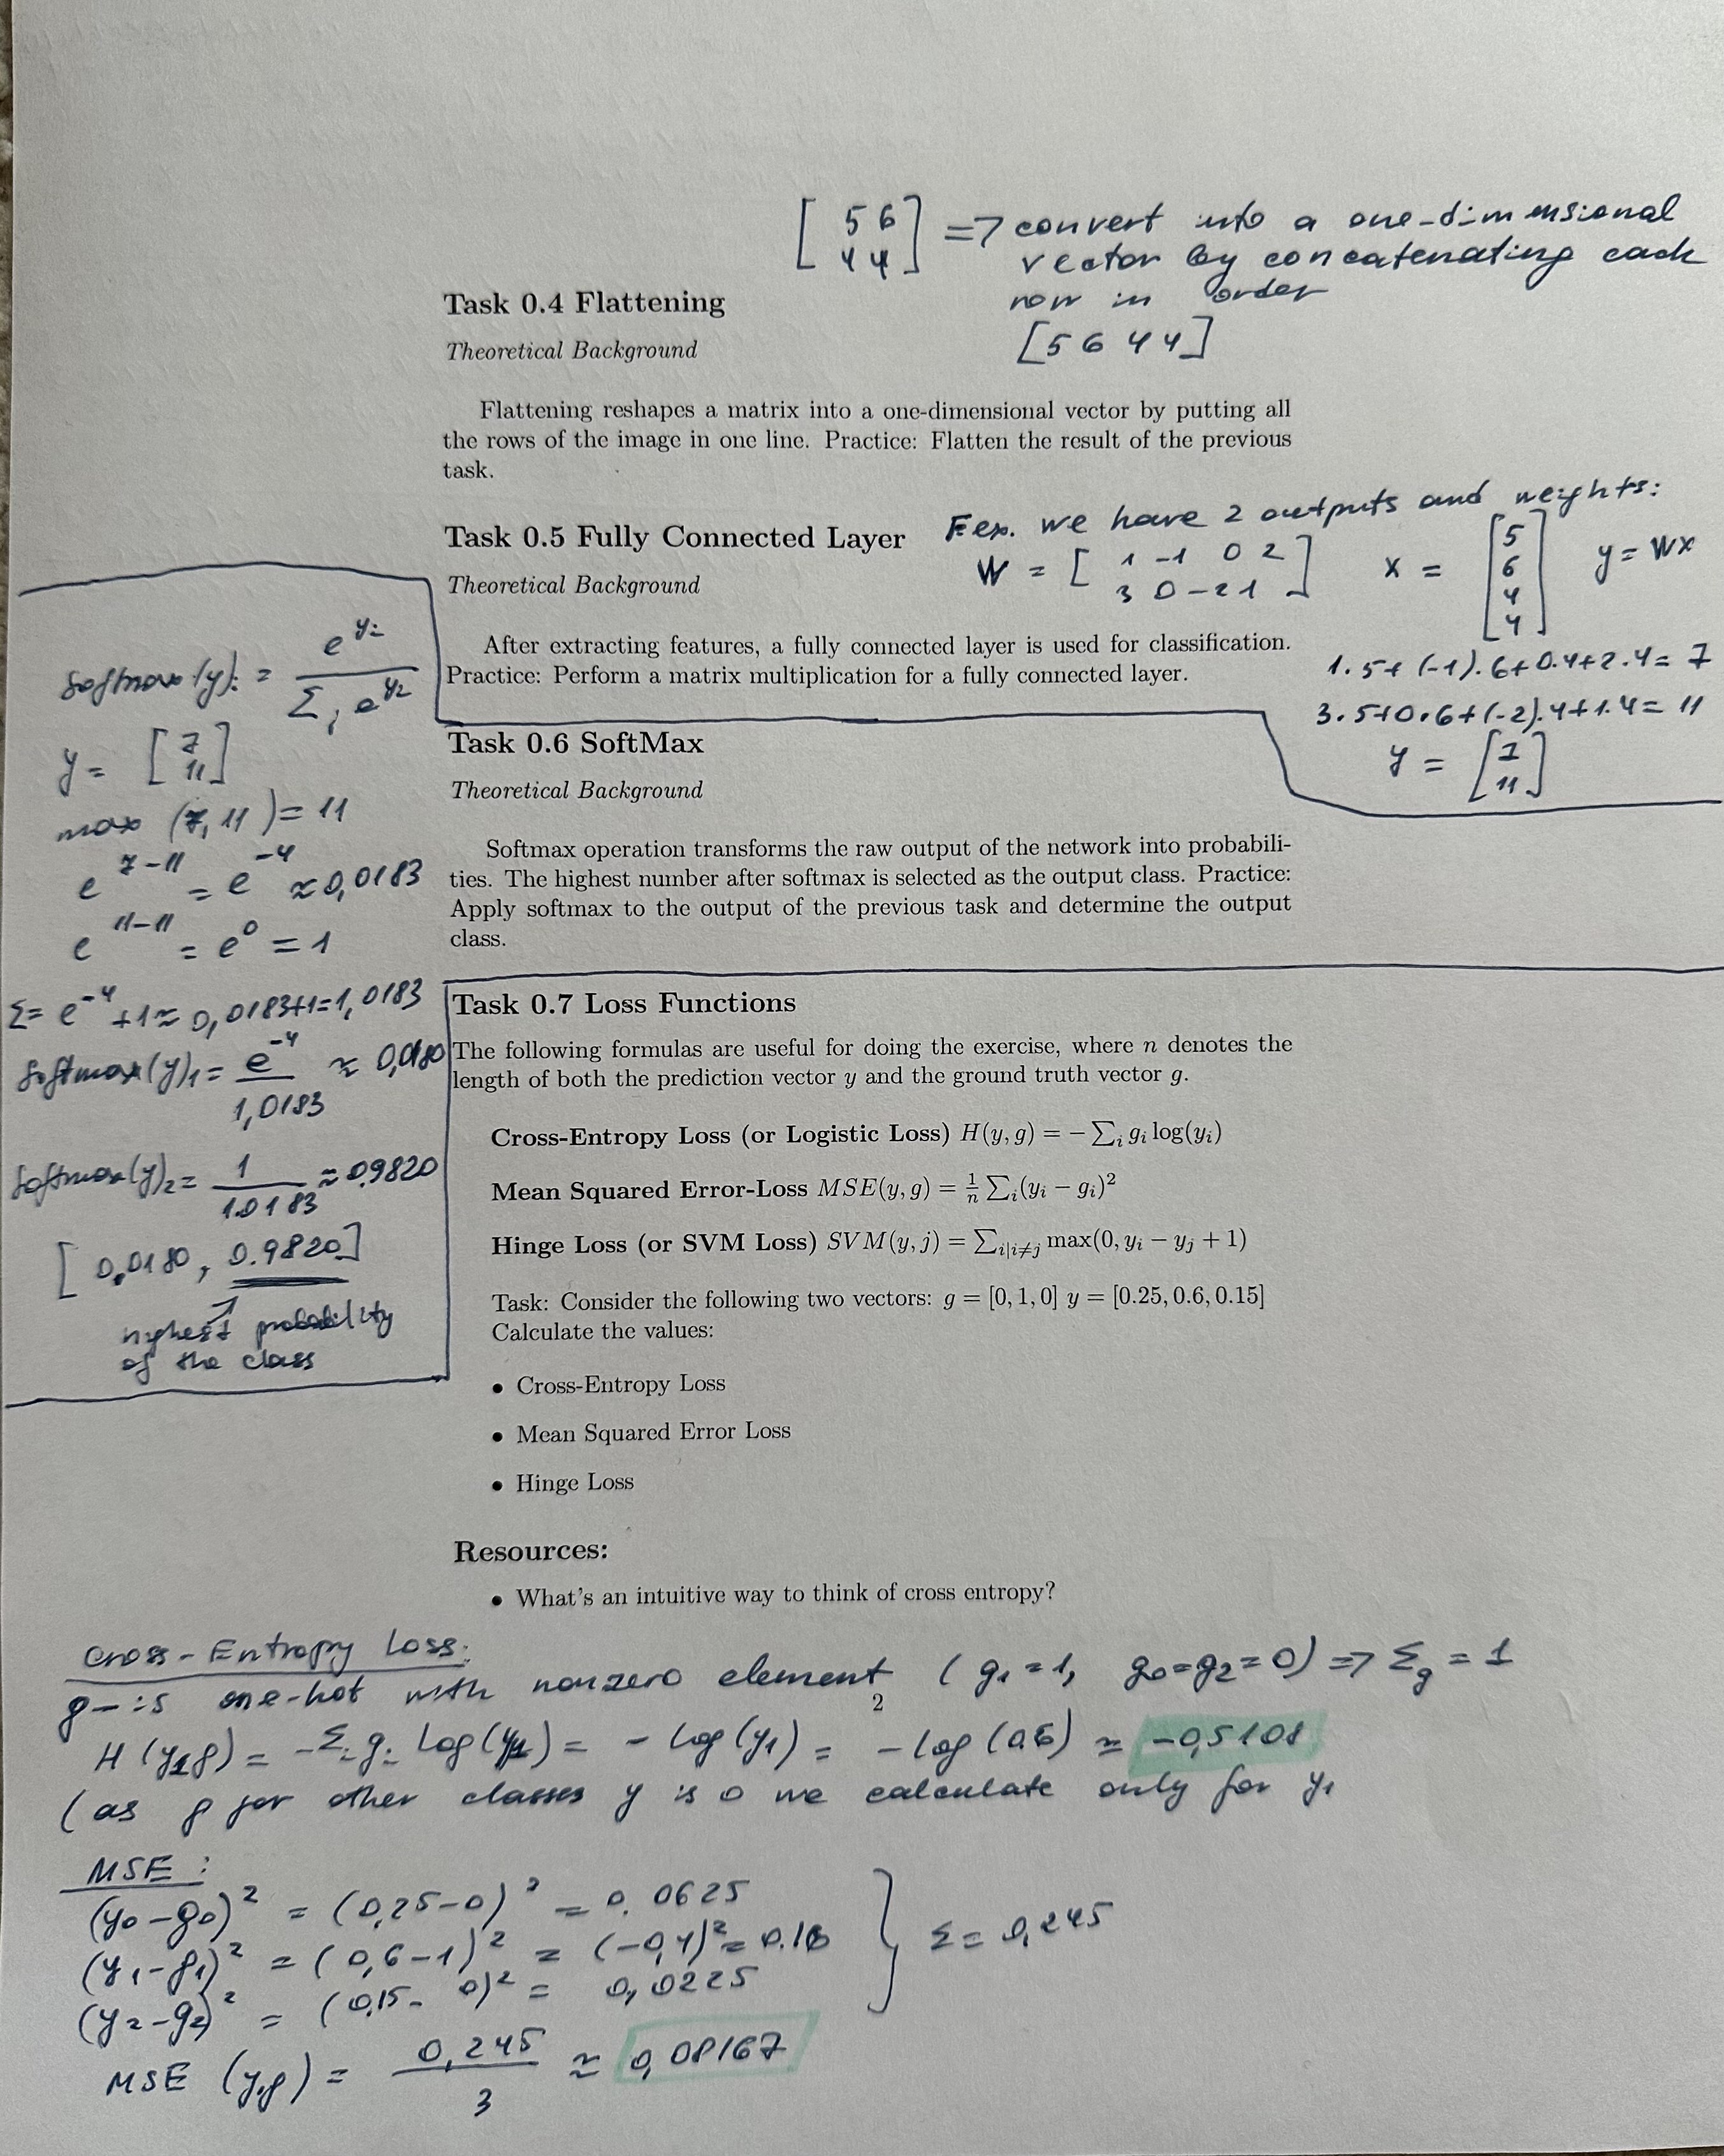 [ 5 6
4 4 ] => convert into a one-dimensional
vector by concatenating each
row in order
[5 6 4 4]
Task 0.4 Flattening
Theoretical Background
Flattening reshapes a matrix into a one-dimensional vector by putting all
the rows of the image in one line. Practice: Flatten the result of the previous
task.
Task 0.5 Fully Connected Layer
Theoretical Background
After extracting features, a fully connected layer is used for classification.
Practice: Perform a matrix multiplication for a fully connected layer.
we have 2 outputs and weights:
W = [ 1 -1 0 2
3 0 -2 1 ]
x = [ 5
6
4
4 ]
y = Wx
1·5+(-1)·6+0·4+2·4= 7
3·5+0·6+(-2)·4+1·4= 11
y = [ 7
11 ]
Task 0.6 SoftMax
Theoretical Background
Softmax operation transforms the raw output of the network into probabili-
ties. The highest number after softmax is selected as the output class. Practice:
Apply softmax to the output of the previous task and determine the output
class.
Softmax(y)i = e^yi / Σj e^y2
y = [ 7
11 ]
max (7, 11) = 11
e^7-11 = e^-4 ≈ 0,0183
e^11-11 = e^0 = 1
Σ= e^-4 +1 ≈ 0,0183+1=1,0183
Softmax(y)1 = e^-4 / 1,0183 ≈ 0,0180
Softmax(y)2 = 1 / 1.0183 ≈ 0.9820
[ 0,0180, 0.9820]
highest probability
of the class
Task 0.7 Loss Functions
The following formulas are useful for doing the exercise, where n denotes the
length of both the prediction vector y and the ground truth vector g.
Cross-Entropy Loss (or Logistic Loss) H(y, g) = −∑i gi log(yi)
Mean Squared Error-Loss MSE(y, g) = 1/n ∑i(yi − gi)²
Hinge Loss (or SVM Loss) SVM(y, j) = ∑i|i≠j max(0, yi − yj + 1)
Task: Consider the following two vectors: g = [0, 1, 0] y = [0.25, 0.6, 0.15]
Calculate the values:
• Cross-Entropy Loss
• Mean Squared Error Loss
• Hinge Loss
Resources:
• What's an intuitive way to think of cross entropy?
Cross-Entropy Loss:
g - is one-hot with nonzero element (g1 = 1, g0=g2=0) => Σg = 1
2
H(y,g) = -Σi gi log(yi) = - log(y1) = - log(0,6) ≈ -0,5108
(as g for other classes y is 0 we calculate only for y1
MSE:
(y0-g0)² = (0,25-0)² = 0.0625
(y1-g1)² = (0,6-1)² = (-0,4)² = 0.16
(y2-g2)² = (0,15- 0)² = 0,0225
} Σ= 0,245
MSE (y,g) = 0,245 / 3 ≈ 0,08167